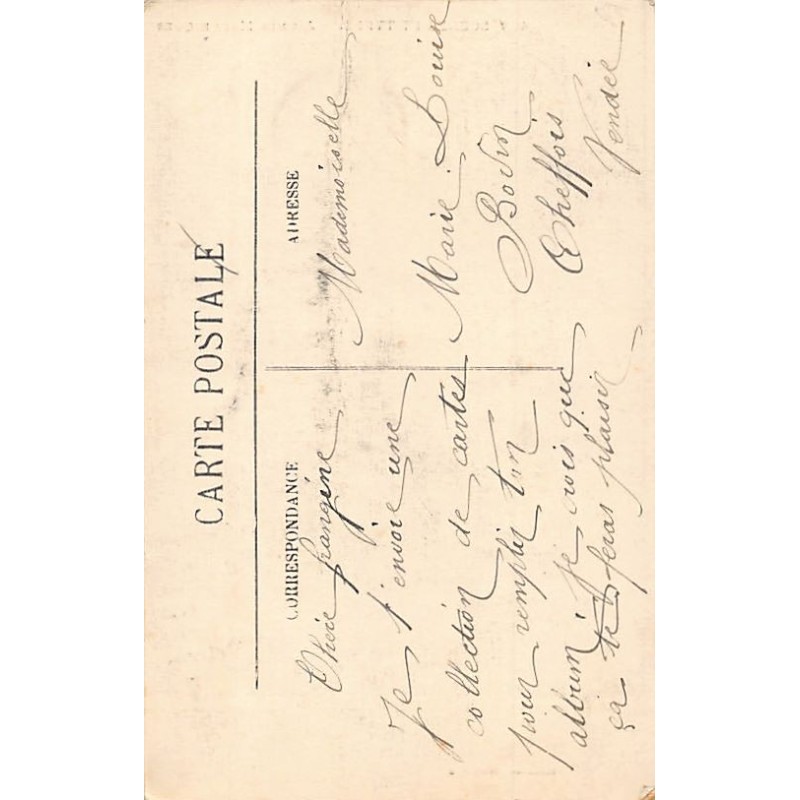 CARTE POSTALE
CORRESPONDANCE
ADRESSE
Chère frangine
Je t'envoie une
collection de cartes
pour remplir ton
album je crois que
ça te feras plaisir
Mademoiselle
Marie-Louise
Bodin
Cheffois
Vendée